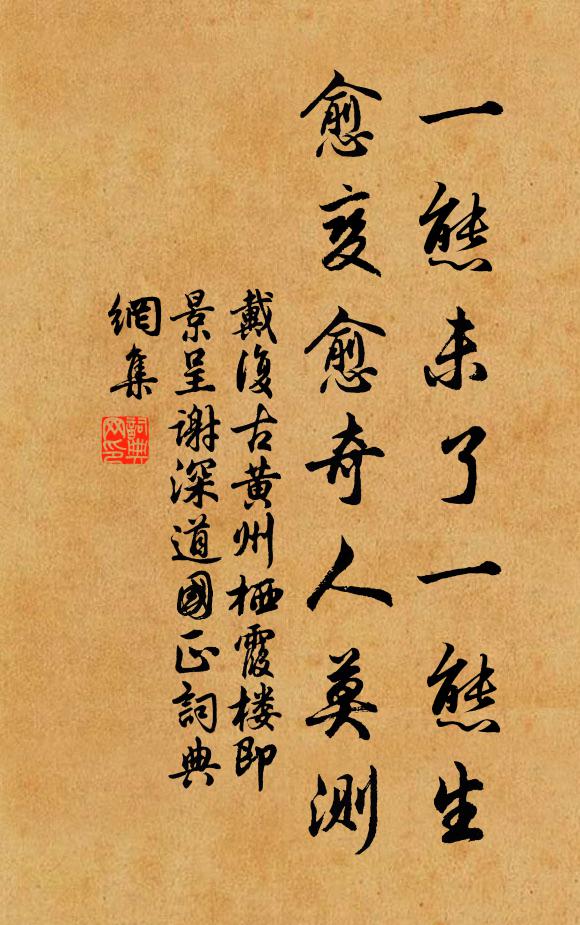 一態未了一態生
愈变愈奇人莫測
戴復古黄州栖霞楼即
景呈謝深道國正詞典
網集
詞典
网印